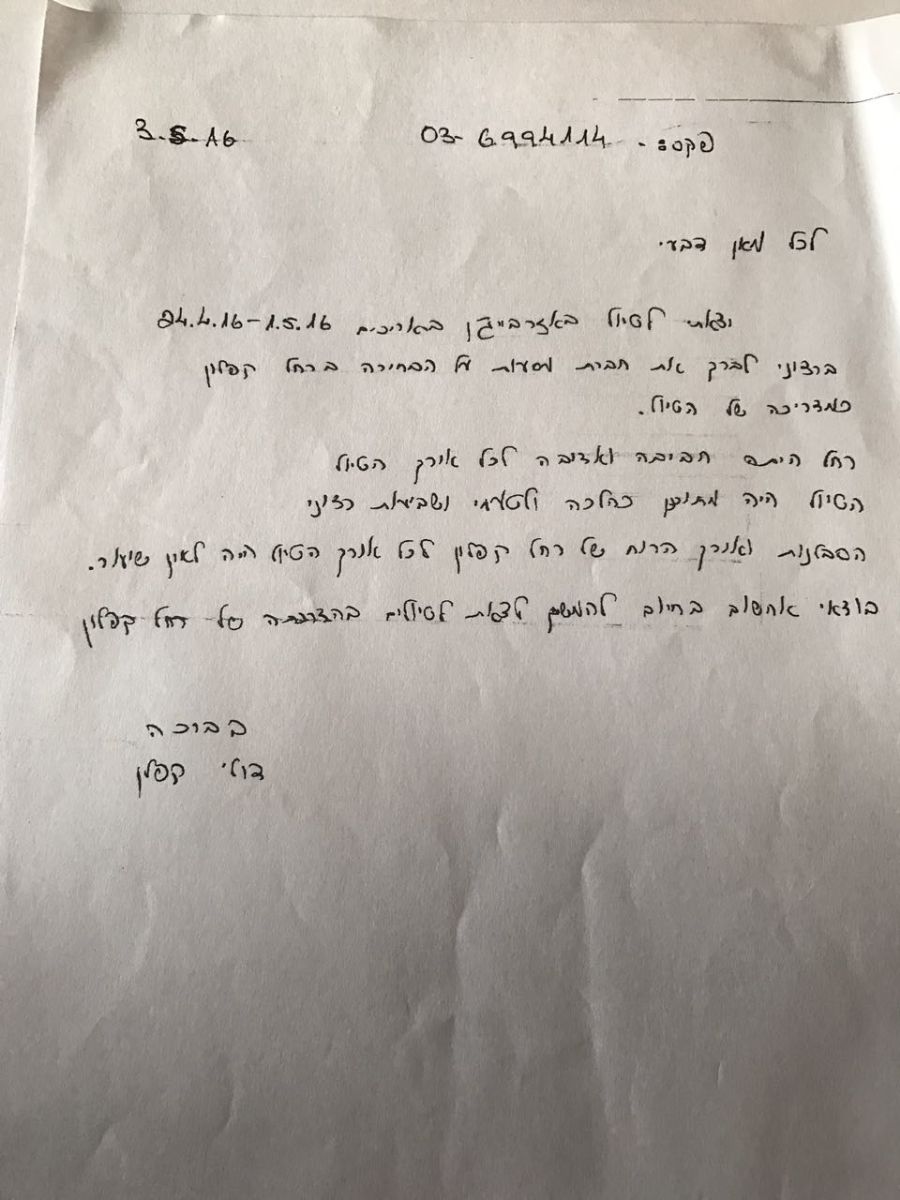 פקס: - 03-6994114 3.5.16
לכל מאן דבעי
יצאתי לטיול באזרבייג'ן בתאריכים 24.4.16-1.5.16
ברצוני לברך את חברת מסעות על הבחירה ברחל קפלון
כמדריכה של הטיול.
רחל היתה חביבה ואדיבה לכל אורך הטיול
הטיול היה מתוכנן כהלכה ולטעמי ושביעות רצוני
הסבלנות ואורך הרוח של רחל קפלון לכל אורך הטיול היה לאין שיעור.
בודאי אחשוב בחיוב להמשיך לצאת לטיולים בהדרכתה של רחל קפלון
בברכה
דולי קפלן